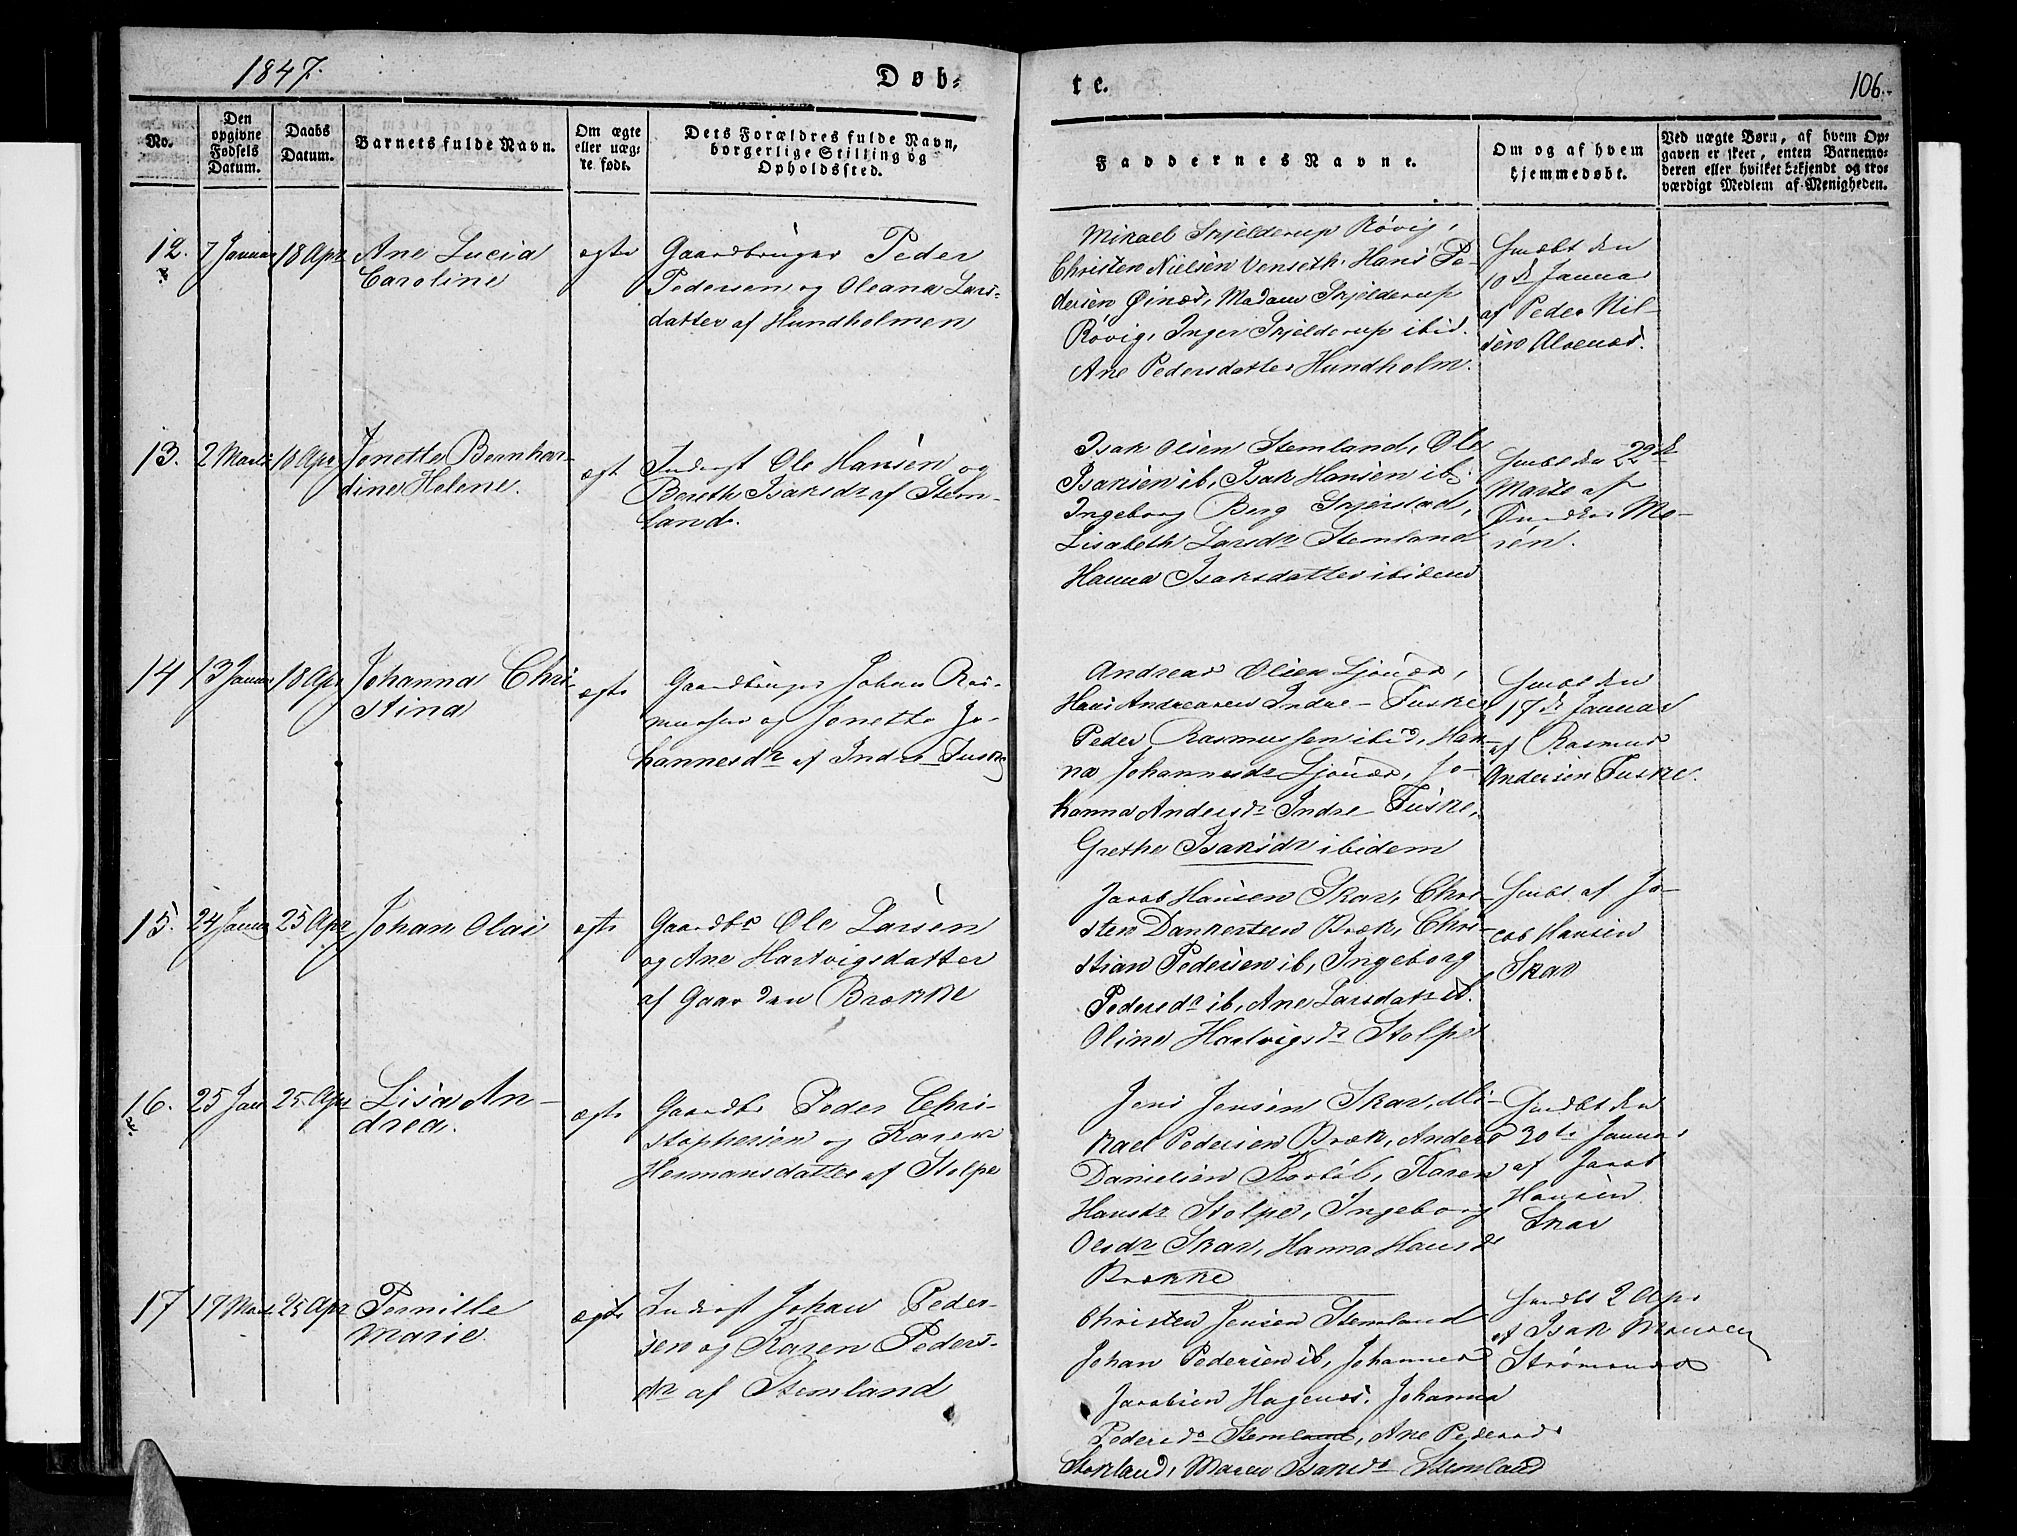 1847.
Døb-
te.
106.
No.
Den
opgivne
Fødsels
Datum.
Daabs
Datum.
Barnets fulde Navn.
Om ægte
eller uæg-
te født.
Dets Forældres fulde Navn,
borgerlige Stilling og
Opholdssted.
Faddernes Navne.
Om og af hvem
hjemmedøbt.
Ved uægte Børn, af hvem Op-
gaven er skeet, enten Barnemo-
deren eller hvilket bekjendt og tro-
værdigt Medlem af Menigheden.
12. 7 Januar 18 Apr Ane Lucia
Caroline
ægte
Gaardbruger Peder
Pedersen og Oleana Lars-
datter af Hundholmen
Mikael Skjelderup Røvig,
Christen Nielsen Venseth, Hans Pe-
dersen Øinæs, Madam Skjelderup
Røvig, Inger Skjelderup ibid.
Ane Pedersdatter Hundholm.
den
10de Januar
af Peder Nil-
sen Alvenæs.
13. 2 Marts 18 Apr Jonette Bernhar-
dine Helene.
ægt
Inderst Ole Hansen og
Bereth Isaksdr af Stem-
land.
Isak Olsen Stemland, Ole
Isaksen ib, Isak Hansen ib,
Ingeborg Berg Skjerstad,
Lisabeth Larsdr Stemland
Hanna Isaksdatter ibidem
22de
Marts af
Mo-
sen.
14 13 Januar 18 Apr Johanna Chri-
stina
ægte
Gaardbruger Johan Ras-
mussen og Jonette Jo-
hannesdr af Indre Fuske
Andreas Olsen Ljønæs,
Hans Andreasen Indre Fuske
Peder Rasmussen ibid, Han-
na Johannesdr Ljønæs, Jo-
hanna Andersdr Indre Fuske,
Grethe Isaksdr ibidem
den
17de Januar
af Rasmus
Andersen Fuske.
15. 24 Januar 25 Apr Johan Olai
ægte
Gaardbr Ole Larsen
og Ane Hartvigsdatter
af Gaarden Brække
Jacob Hansen Skar, Chri-
sten Dankertsen Bræk, Chri-
stian Pedersen ib, Ingeborg
Pedersdr ib, Ane Larsdatr ib.
Oline Hartvigsdr Stolpe
af Ja-
cob Hansen
Skar
16. 25 Jan 25 Apr Lisa An-
drea.
ægte
Gaardbr Peder Chri-
stophersen og Karen
Hermansdatter af Stolpe
Jens Jensen Skar, Mi-
kael Pedersen Bræk, Anders
Danielsen, Karen
Hansdr Stolpe, Ingeborg
Olsdr Skar, Hanna Hansdr
Brække
den
30te Januar
af Jacob
Hansen
Skar
17 17 Marts 25 Apr Pernille
Marie.
ægte
Inderst Johan Peder-
sen og Karen Peders-
dr af Stemland
Christen Jensen Stemland
Johan Pedersen ib, Johannes
Jacobsen Hagenæs, Johanna
Pedersdr Stemland, Ane Pedersdr
Storland, Maren Isaksdr Stemland
2 Apr
af Isak Monsen
Strømsnæs